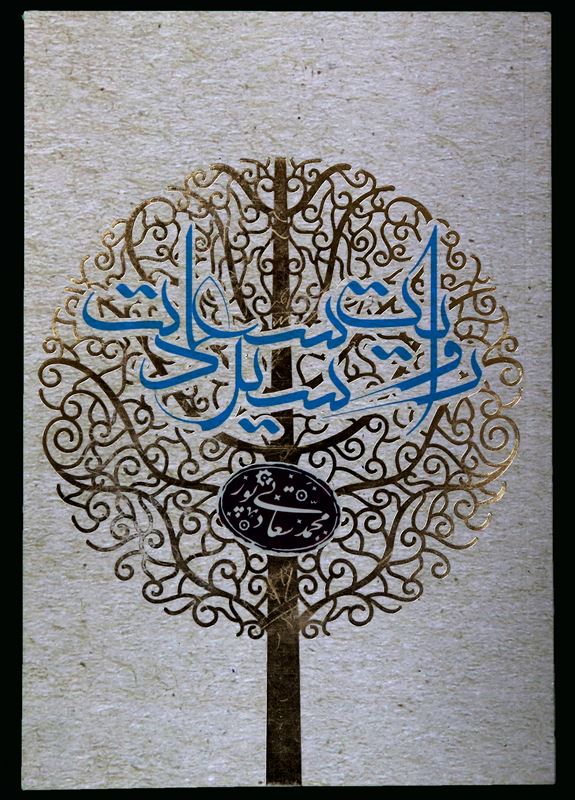 روایت سیل سعادت
محمد سعادتی پور